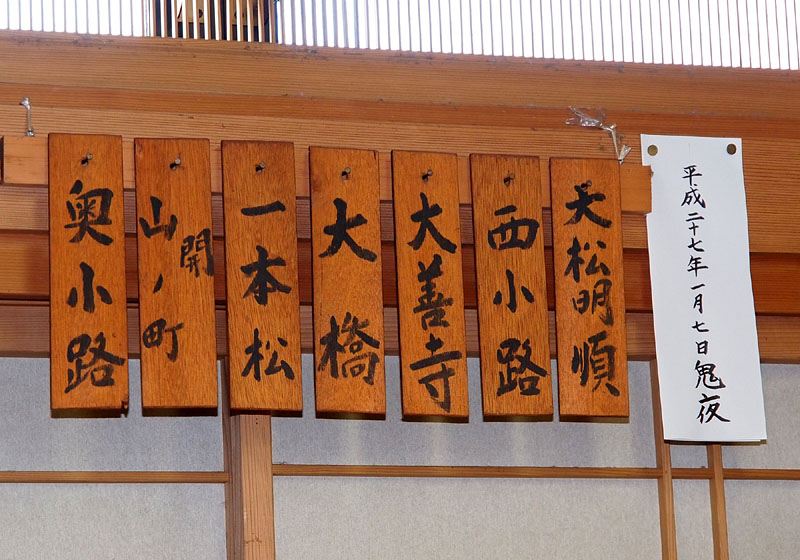 平成二十七年一月七日鬼夜
大松明順
西小路
大善寺
大橋
一本松
開
山ノ町
奥小路